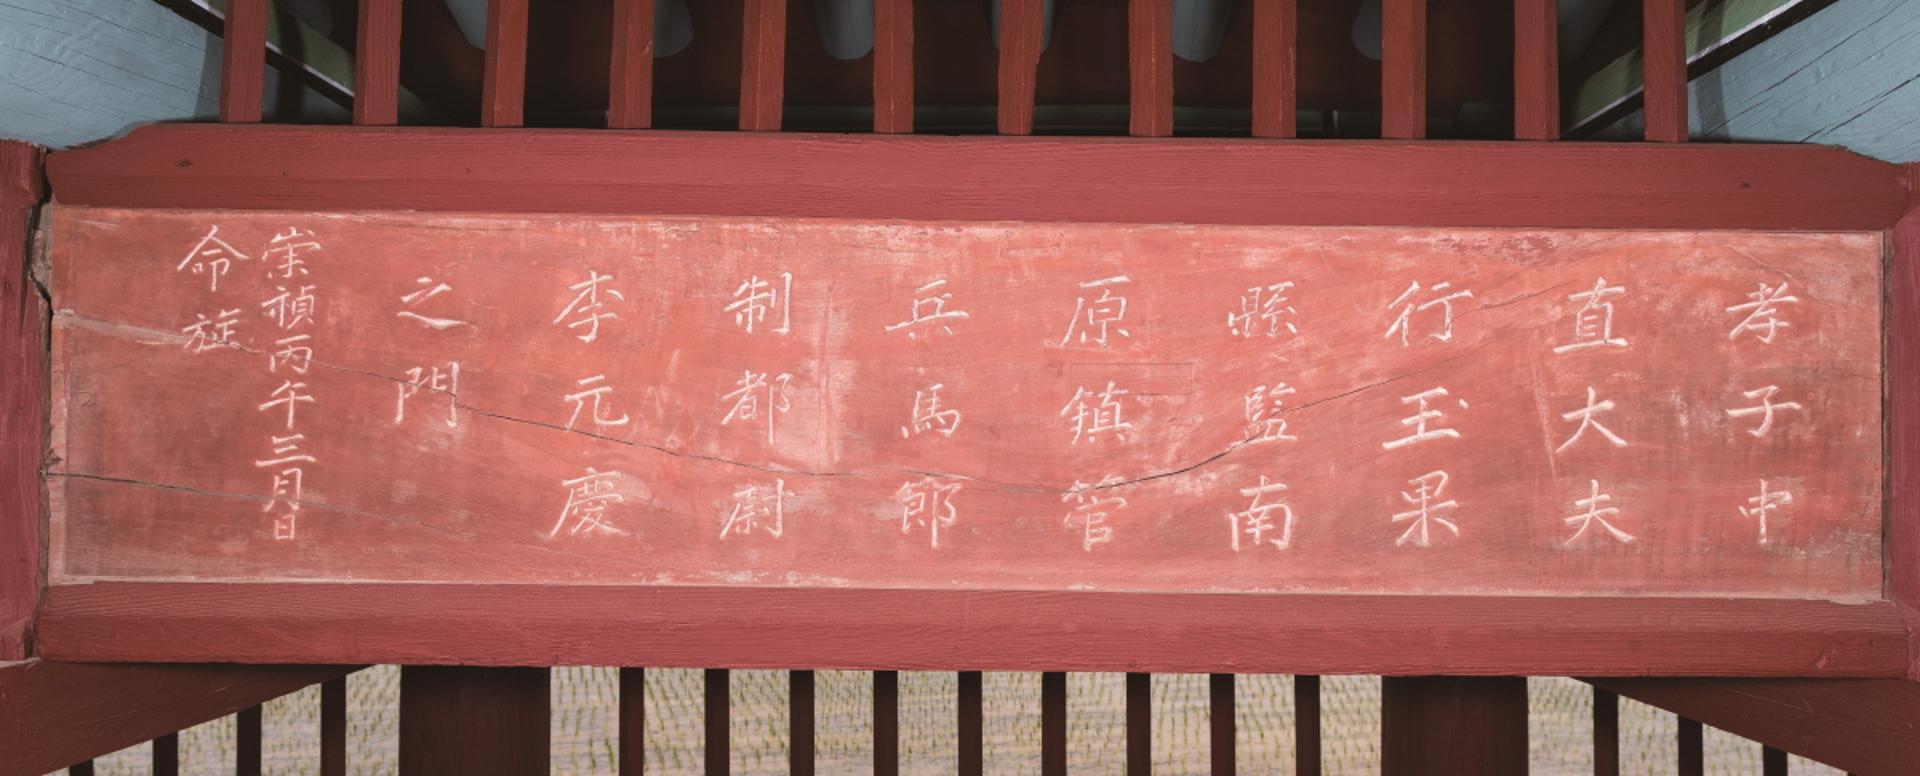 孝子中
直大夫
行玉果
縣監南
原鎮管
兵馬節
制都尉
李元慶
之門
崇禎丙午三月日
命旌